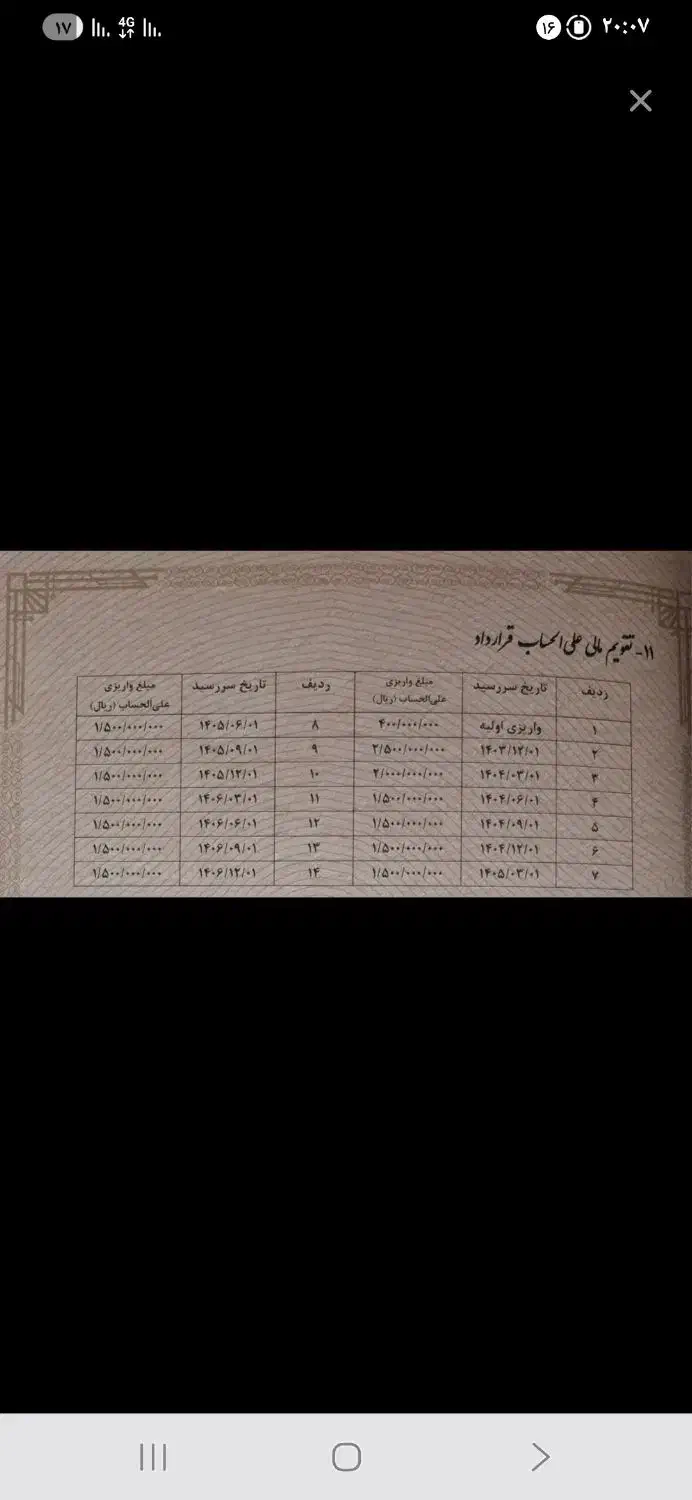 ۱۷ 4G ۱۶ ۲۰:۰۷
۱۱- تقویم مالی علی الحساب قرارداد
ردیف تاریخ سررسید مبلغ واریزی علی‌الحساب (ریال) ردیف تاریخ سررسید مبلغ واریزی علی‌الحساب (ریال)
۱ واریزی اولیه ۴۰۰/۰۰۰/۰۰۰ ۸ ۱۴۰۵/۰۶/۰۱ ۱/۵۰۰/۰۰۰/۰۰۰
۲ ۱۴۰۳/۱۲/۰۱ ۲/۵۰۰/۰۰۰/۰۰۰ ۹ ۱۴۰۵/۰۹/۰۱ ۱/۵۰۰/۰۰۰/۰۰۰
۳ ۱۴۰۴/۰۳/۰۱ ۲/۰۰۰/۰۰۰/۰۰۰ ۱۰ ۱۴۰۵/۱۲/۰۱ ۱/۵۰۰/۰۰۰/۰۰۰
۴ ۱۴۰۴/۰۶/۰۱ ۱/۵۰۰/۰۰۰/۰۰۰ ۱۱ ۱۴۰۶/۰۳/۰۱ ۱/۵۰۰/۰۰۰/۰۰۰
۵ ۱۴۰۴/۰۹/۰۱ ۱/۵۰۰/۰۰۰/۰۰۰ ۱۲ ۱۴۰۶/۰۶/۰۱ ۱/۵۰۰/۰۰۰/۰۰۰
۶ ۱۴۰۴/۱۲/۰۱ ۱/۵۰۰/۰۰۰/۰۰۰ ۱۳ ۱۴۰۶/۰۹/۰۱ ۱/۵۰۰/۰۰۰/۰۰۰
۷ ۱۴۰۵/۰۳/۰۱ ۱/۵۰۰/۰۰۰/۰۰۰ ۱۴ ۱۴۰۶/۱۲/۰۱ ۱/۵۰۰/۰۰۰/۰۰۰